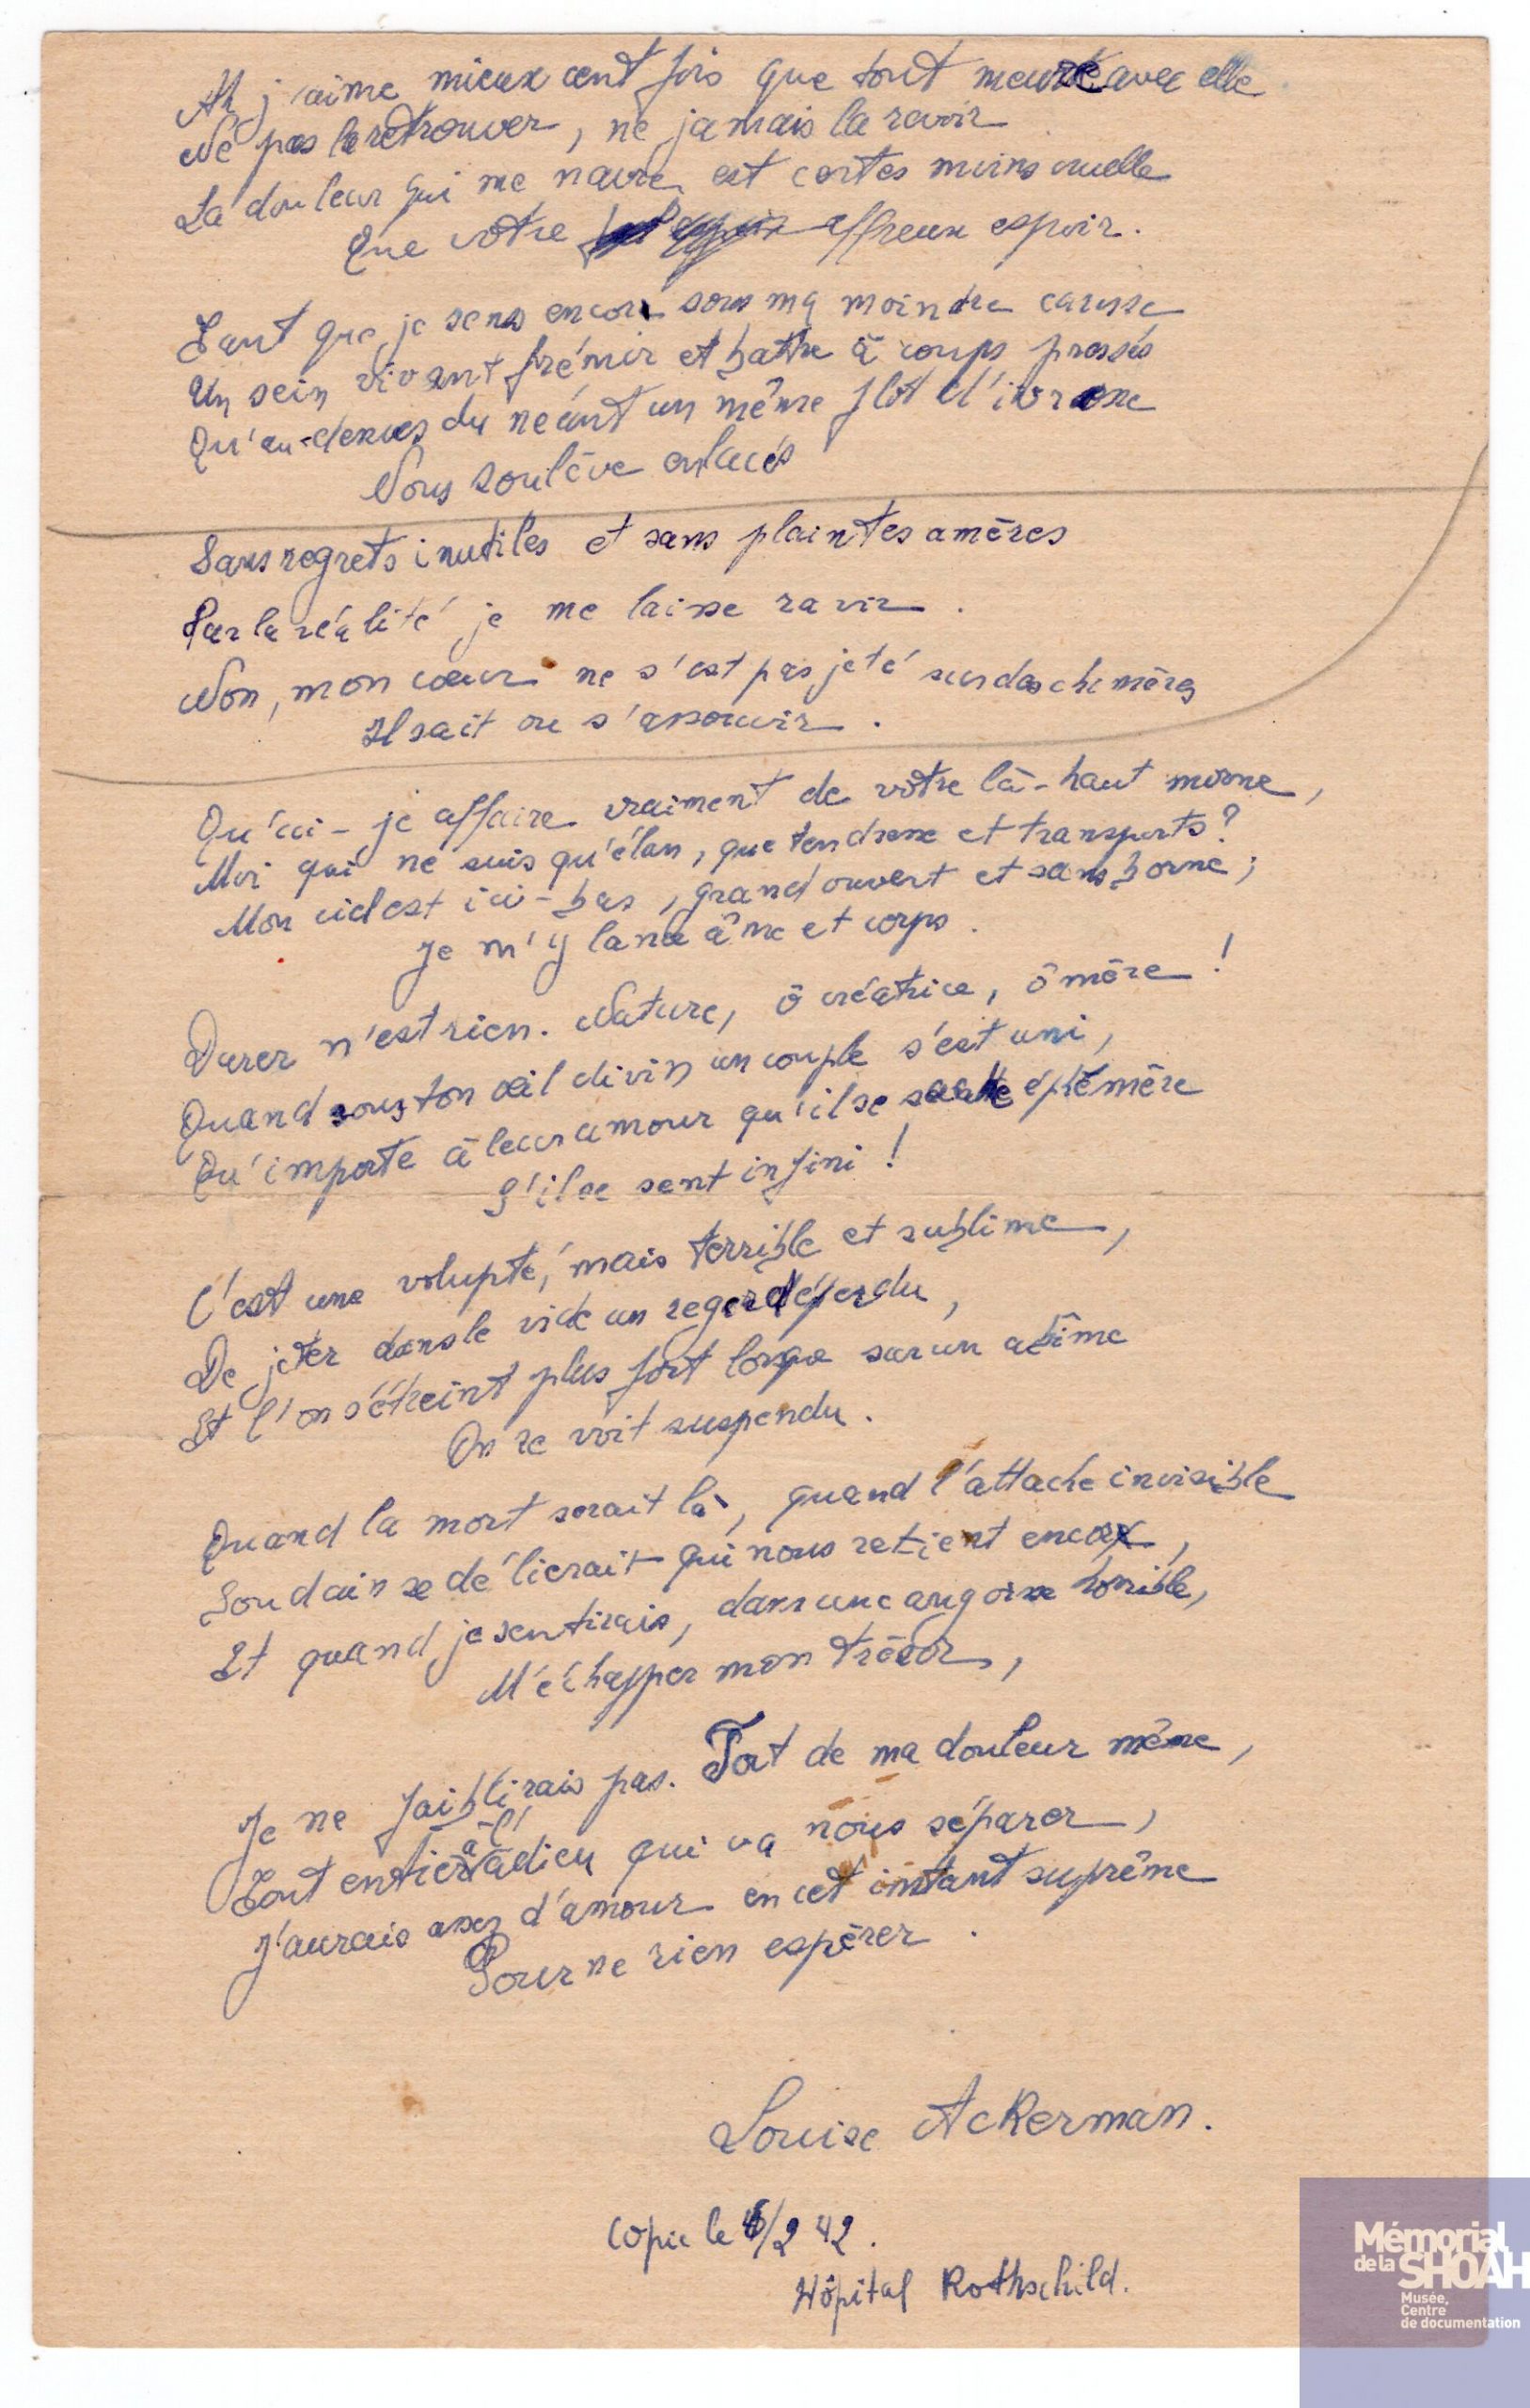 Ah j'aime mieux cent fois que tout meure avec elle
Ne pas la retrouver, ne jamais la revoir
La douleur qui me navre est certes moins cruelle
Que votre affreux espoir.
Tant que je sens encor sous ma moindre caresse
Un sein vivant frémir et battre à coups pressés
Qu'au-dessus du néant un même flot d'ivresse
Nous soulève enlacés
Sans regrets inutiles et sans plaintes amères
Par la réalité je me laisse ravir.
Non, mon cœur ne s'est pas jeté sur des chimères
Il sait ou s'assouvir.
Qu'ai-je affaire vraiment de votre là-haut morne,
Moi qui ne suis qu'élan, que tendresse et transports?
Mon ciel est ici-bas, grand ouvert et sans borne;
Je m'y lance âme et corps.
Durer n'est rien. Nature, ô créatrice, ô mère!
Quand sous ton œil divin un couple s'est uni,
Qu'importe à leur amour qu'il se sache éphémère
S'il se sent infini!
C'est une volupté, mais terrible et sublime,
De jeter dans le vide un regard éperdu,
Et l'on s'étreint plus fort lorsque sur un abîme
On se voit suspendu.
Quand la mort serait là, quand l'attache invisible
Soudain se délierait qui nous retient encor,
Et quand je sentirais, dans une angoisse horrible,
M'échapper mon trésor,
Je ne faiblirais pas. Fort de ma douleur même,
Tout entier à l'adieu qui va nous séparer,
J'aurais assez d'amour en cet instant suprême
Pour ne rien espérer.
Louise Ackerman.
Copie le /2 42.
Hôpital Rothschild.
Mémorial
de la SHOAH
Musée,
Centre
de documentation